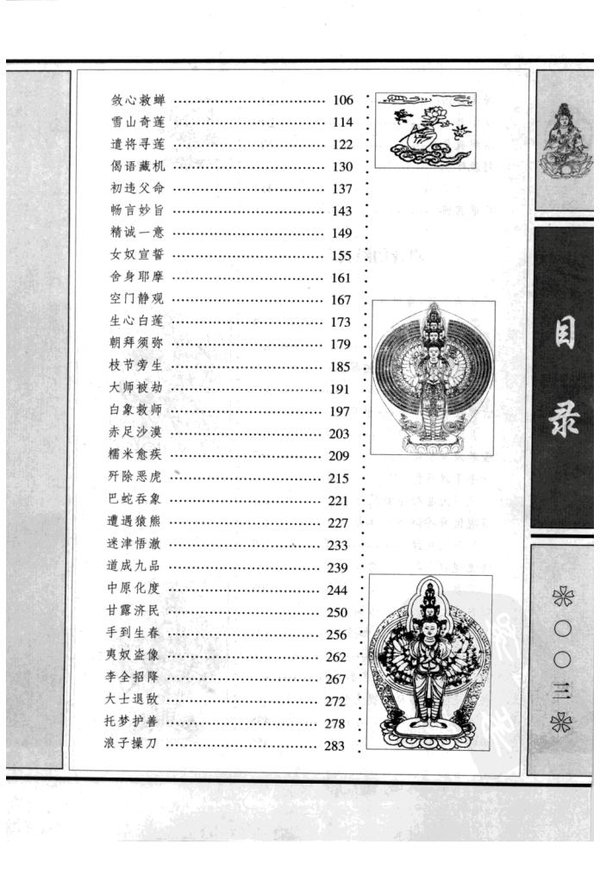 敛心救蝉 …………………… 106
雪山奇莲 …………………… 114
遣将寻莲 …………………… 122
偈语藏机 …………………… 130
初违父命 …………………… 137
畅言妙旨 …………………… 143
精诚一意 …………………… 149
女奴宣誓 …………………… 155
舍身耶摩 …………………… 161
空门静观 …………………… 167
生心白莲 …………………… 173
朝拜须弥 …………………… 179
枝节旁生 …………………… 185
大师被劫 …………………… 191
白象救师 …………………… 197
赤足沙漠 …………………… 203
糯米愈疾 …………………… 209
歼除恶虎 …………………… 215
巴蛇吞象 …………………… 221
遭遇猿熊 …………………… 227
迷津悟澈 …………………… 233
道成九品 …………………… 239
中原化度 …………………… 244
甘露济民 …………………… 250
手到生春 …………………… 256
夷奴盗像 …………………… 262
李全招降 …………………… 267
大士退敌 …………………… 272
托梦护善 …………………… 278
浪子操刀 …………………… 283
目录
〇〇三